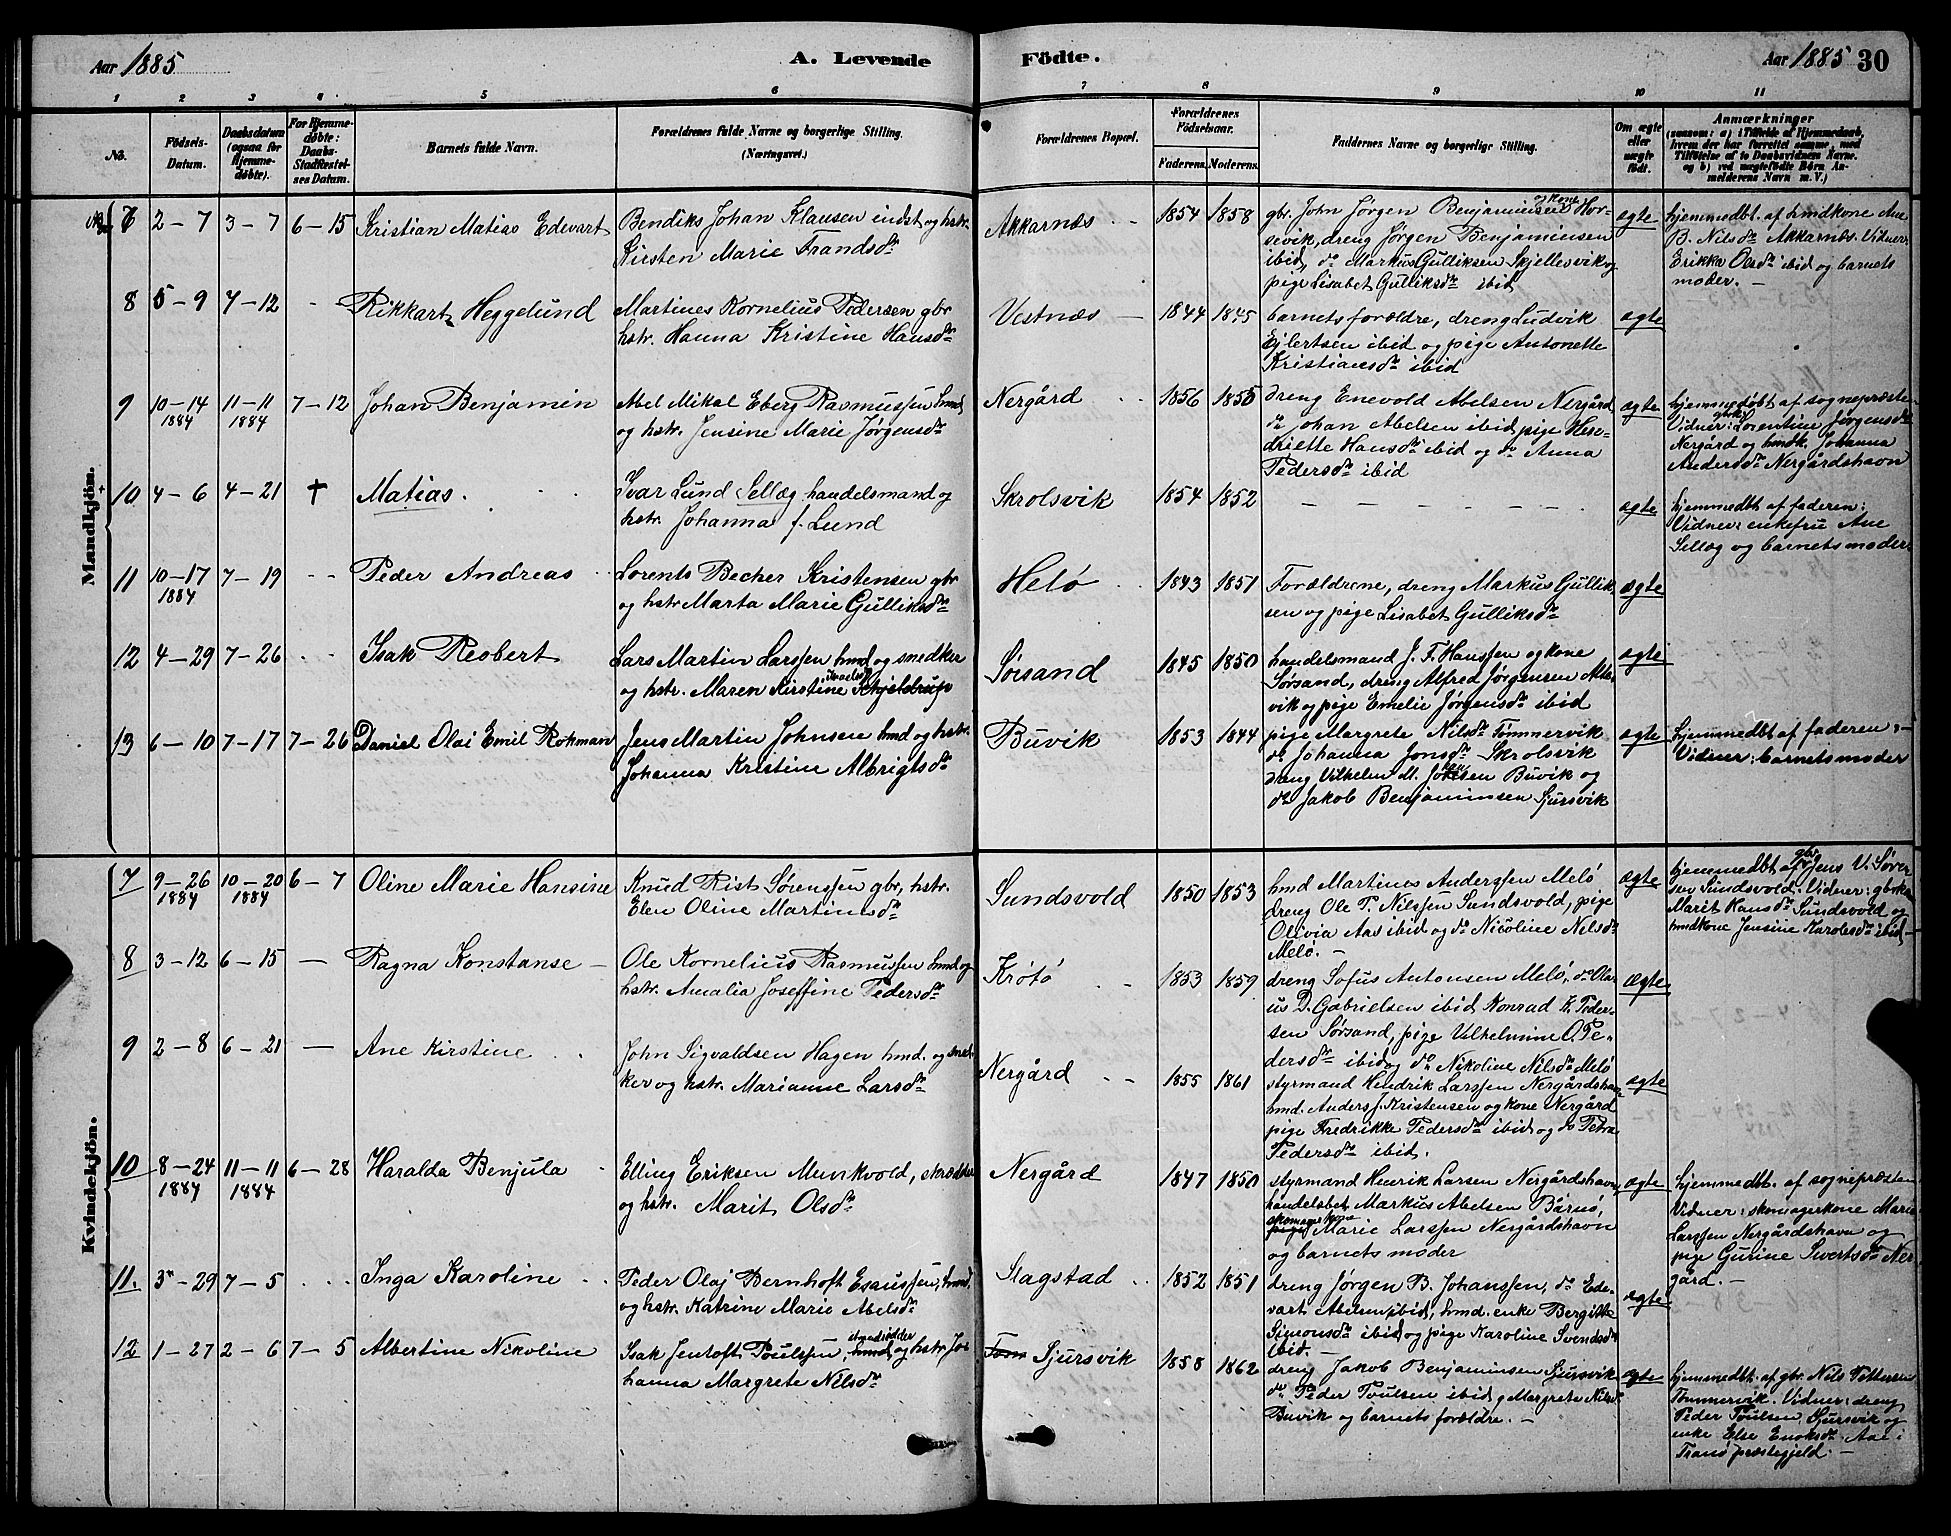 Aar 1885
A. Levende
Födte.
Aar 1885 30
1 2 3 4 5 6 7 8 9 10 11
No.
Födsels-
Datum.
Daabsdatum
(ogsaa for
Hjemme-
döbte).
For Hjemme-
döbte:
Daabs-
Stadfæstel-
ses Datum.
Barnets fulde Navn.
Forældrenes fulde Navne og borgerlige Stilling.
(Næringsvei.)
Forældrenes Bopæl.
Forældrenes
Födselsaar.
Faderens. Moderens.
Faddernes Navne og borgerlige Stilling.
Om ægte
eller
uægte
født.
Anmærkninger
(saasom: a) i Tilfælde af Hjemmedaab,
hvem der har forrettet samme, med
Tilföielse af to Daabsvidners Navne.
og b) ved uægtefödte Börn An-
melderens Navn m. V.)
Mandkjön.
7 2-7 3-7 6-15 Kristian Matias Edevart
Bendiks Johan Klausen indst og hstr.
Kirsten Marie Frandsdr
Akkarnæs 1854 1858
gbr. John Jørgen Benjaminsen og Kone Hor-
sevik, dreng Jørgen Benjaminsen
ibid, do Markus Gulliksen Skjellesvik og
pige Lisabet Gulliksdr ibid
ægte
hjemmedbt. af hmdkone Ane
B. Nilsdr Akkarnæs. Vidner
Erikka Olsdr ibid og barnets
moder. -
8 5-9 7-12 - Rikkart Heggelund
Martines Kornelius Pedersen gbr
hstr. Hanna Kristine Hansdr
Vestnæs - 1844 1845
barnets forældre, dreng Ludvik
Ejlertsen ibid og pige Antonette
Kristiansdr ibid
ægte
9 10-14 11-11 7-12 Johan Benjamin
1884 1884
Abel Mikal Eberg Rasmussen hmd
og hstr. Jensine Marie Jørgensdr
Nergård 1856 1855
dreng Enevold Abelsen Nergård
do Johan Abelsen ibid pige Hen-
driette Hansdr ibid og do Anna
Pedersdr ibid
ægte
hjemmedøbt af sognepræsten
Vidner: Lorentine Jørgensdr
Nergård og hmdk. Johanna
Andersdr Nergårdshavn
10 4-6 4-21 † Matias.
Ivar Lund Sellæg handelsmand og
hstr. Johanna f. Lund
Skrolsvik 1854 1852 - - - - - - -
ægte
hjemmedbt af faderen:
Vidner: enkefru Ane
Sellæg og barnets moder.
11 10-17 7-19 - - Peder Andreas
1884
Lorents Becher Kristensen gbr
og hstr Marta Marie Gulliksdr
Helø 1843 1851
Forældrene, dreng Markus Gullik-
sen og pige Lisabet Gulliksdr
ægte
12 4-29 7-26 Isak Robert
Lars Martin Larssen hmd og snedker
og hstr. Maren Kirstine Schjeldrup
Sørsand 1845 1850
handelsmand J. F. Hanssen og kone
Sørsand, dreng Alfred Jørgensen Alte-
vik og pige Emelie Jørgensdr ibid
ægte
13 6-10 7-17 7-26 Daniel Olai Emil Rokman
Jens Martin Johnsen hmd og hstr.
Johanna Kristine Albrigtsdr
Buvik 1853 1844
pige Margrete Nilsdr Tømmervik
do Johanna Jonsdr Skrolsvik
dreng Vilhelm M. Jensen Buvik og
do Jakob Benjaminsen Sjursvik
ægte
hjemmedbt af faderen: -
Vidner: barnets moder
Kvindekjön.
7 9-26 10-20 6-7 Oline Marie Hansine
1884 1884
Knud Rist Sørenssen gbr, hstr.
Elen Oline Martinusdr
Sundsvold 1850 1853
hmd Martines Anderssen Melø
dreng Ole P. Nilssen Sundsvold, pige
Olivia Aas ibid og do Nicoline Nilsdr
Melø. -
ægte
hjemmedbt af gbr. Jens V. Søren-
sen Sundsvold. Vidner: gbrk.
Marit Hansdr Sundsvold og
hmdkone Jensine Karolesdr ibid -
8 3-12 6-15 - Ragna Konstanse -
Ole Kornelius Rasmussen hmd og
hstr. Amalia Joseffine Pedersdr
Krøtø 1853 1859
dreng Sofus Antonsen Melø, do Ola-
us D. Gabrielsen ibid Konrad K. Peder-
sen Sørsand, pige Vilhelmine O. Pe-
dersdr ibid og do Nikoline Nilsdr Melø
ægte
9 2-8 6-21 - Ane Kirstine
John Sigvaldsen Hagen hmd. og sned-
ker og hstr. Marianne Larsdr
Nergård 1855 1861
styrmand Hendrik Larssen Nergårdshavn
hmd. Anders J. Kristensen og kone Nergård
pige Fredrikke Pedersdr ibid og do Petra
Pedersdr ibid.
ægte
10 8-24 11-11 6-28 Haralda Benjula
1884 1884
Elling Eriksen Munkvold, skrædder
og hstr. Marit Olsdr
Nergård 1847 1850
styrmand Henrik Larsen Nergårdshavn,
handelsbet Markus Abelsen Bårnø,
skomagerkone
pige Marie Larssen Nergårdshavn
og barnets moder
ægte
hjemmedbt. af sognepræsten
Vidner: skomagerkone Marie
Larssen Nergårdshavn og
pige Gurine Sivertsdr Ner-
gård. -
11. 3-29 7-5 Inga Karoline
Peder Olaj Bernhoft Esaussen, hmd,
og hstr. Katrine Marie Abelsdr
Slagstad 1852 1851
dreng Jørgen B. Johanssen, do Ede-
vart Abelsen ibid, hmd. enke Bergitte
Simonsdr ibid og pige Karoline Svendsdr
ibid. -
ægte
12 1-27 2-6 7-5 Albertine Nikoline
Isak Jentoft Poulssen, hmd og hstr. Jo-
hanna Margrete Nilsdr
Tøm Sjursvik 1858 1862
dreng Jakob Benjaminsen Sjursvik
do Peder Poulsen ibid, Margrete Nilsdr
Buvik og barnets forældre. -
ægte
hjemmedbt. af gbr. Nils Pettersen
Tømmervik. Vidner: dreng
Peder Poulsen Sjursvik og
enke Else Enoksdr Aae i
Tranø præstegjeld. -